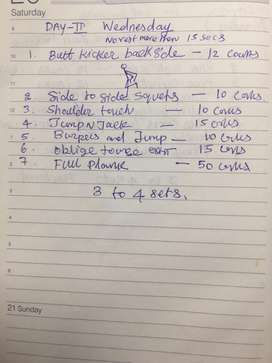 Saturday
DAY-II Wednesday
No rest more than 15 secs
1. Butt kicker back side - 12 counts
2 Side to side squets - 10 Conts
3. Shoulder touch - 10 conts
4. Jump N Jack - 15 conts
5 Burpees and Jump - 10 conts
6. oblige - 15 conts
7 Full Planke - 50 conts
3 to 4 sets.
21 Sunday